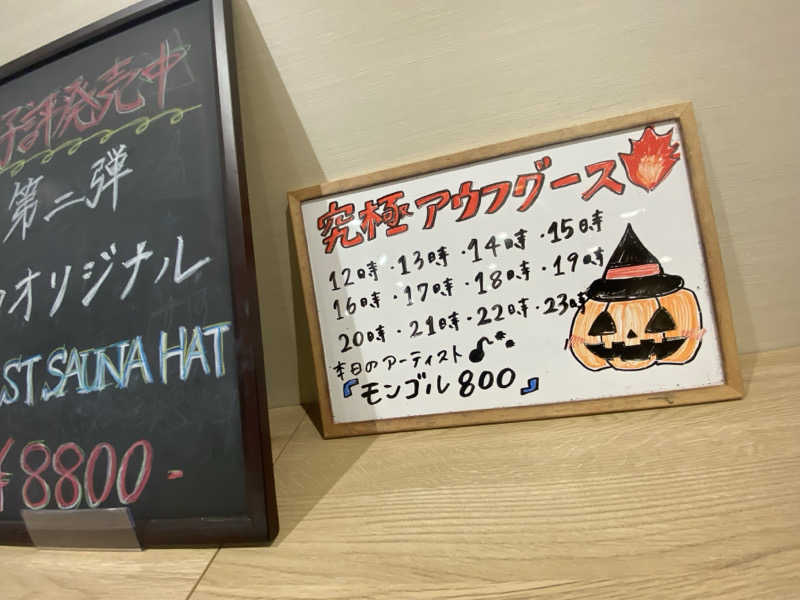 好評発売中
第二弾
オリジナル
ST SAUNA HAT
¥8800-
究極アウフグース
12時・13時・14時・15時
16時・17時・18時・19時
20時・21時・22時・23時
本日のアーティスト♪
『モンゴル800』